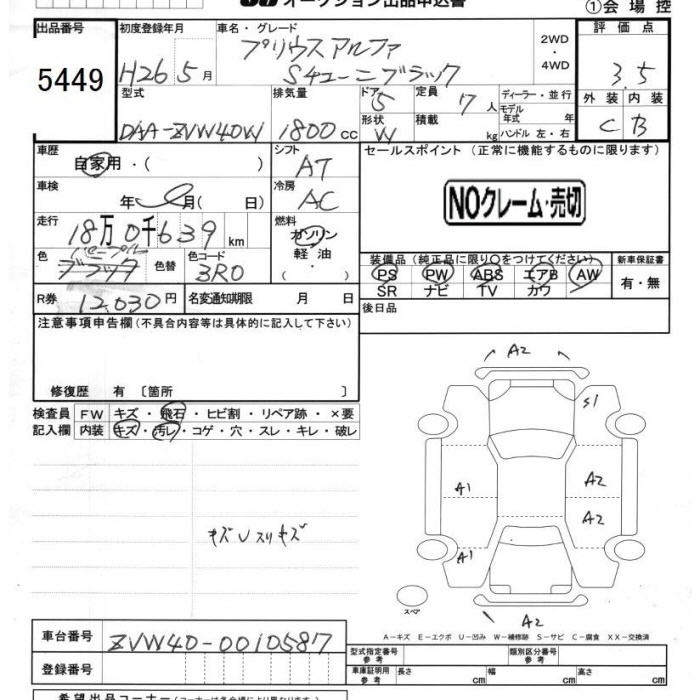 オークション出品申込書
①会場控
出品番号 初度登録年月 車名・グレード 評価点
5449 H26 5月 プリウスアルファ 2WD・4WD 3.5
Sチューンブラック
型式 排気量 ドア 定員 ディーラー・並行 外装 内装
5 7人 モデル年式 年
DAA-ZVW40W 1800cc 形状 W 積載 kg ハンドル 左・右 C B
車歴 自家用・( ) シフト AT セールスポイント (正常に機能するものに限ります)
車検 年 月( 日) 冷房 AC NOクレーム・売切
走行 18万0千639km 燃料 ガソリン
軽油・( )
色 ブラック 色替 色コード 3R0 装備品(純正品に限り○をつけてください) 新車保証書
PS PW ABS エアB AW 有・無
SR ナビ TV カワ
R券 12,030円 名変通知期限 月 日 後日品
注意事項申告欄(不具合内容等は具体的に記入して下さい)
修復歴 有〔箇所 〕
検査員 FW キズ・飛石・ヒビ割・リペア跡・×要
記入欄 内装 キズ・汚レ・コゲ・穴・スレ・キレ・破レ
キズUスリキズ
A2
S1
A1 A2
A2
A1
A2
スペア
A-キズ E-エクボ U-凹み W-補修跡 S-サビ C-腐食 XX-交換済
車台番号 ZVW40-0010587
登録番号
型式指定番号 参考 類別区分番号 参考
車庫証明用 参考 長さ cm 幅 cm 高さ cm
希望出品コーナー(コーナーは各会場により異なります)